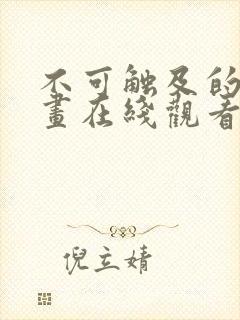 不可触及的
畫在綫觀看
倪立婧